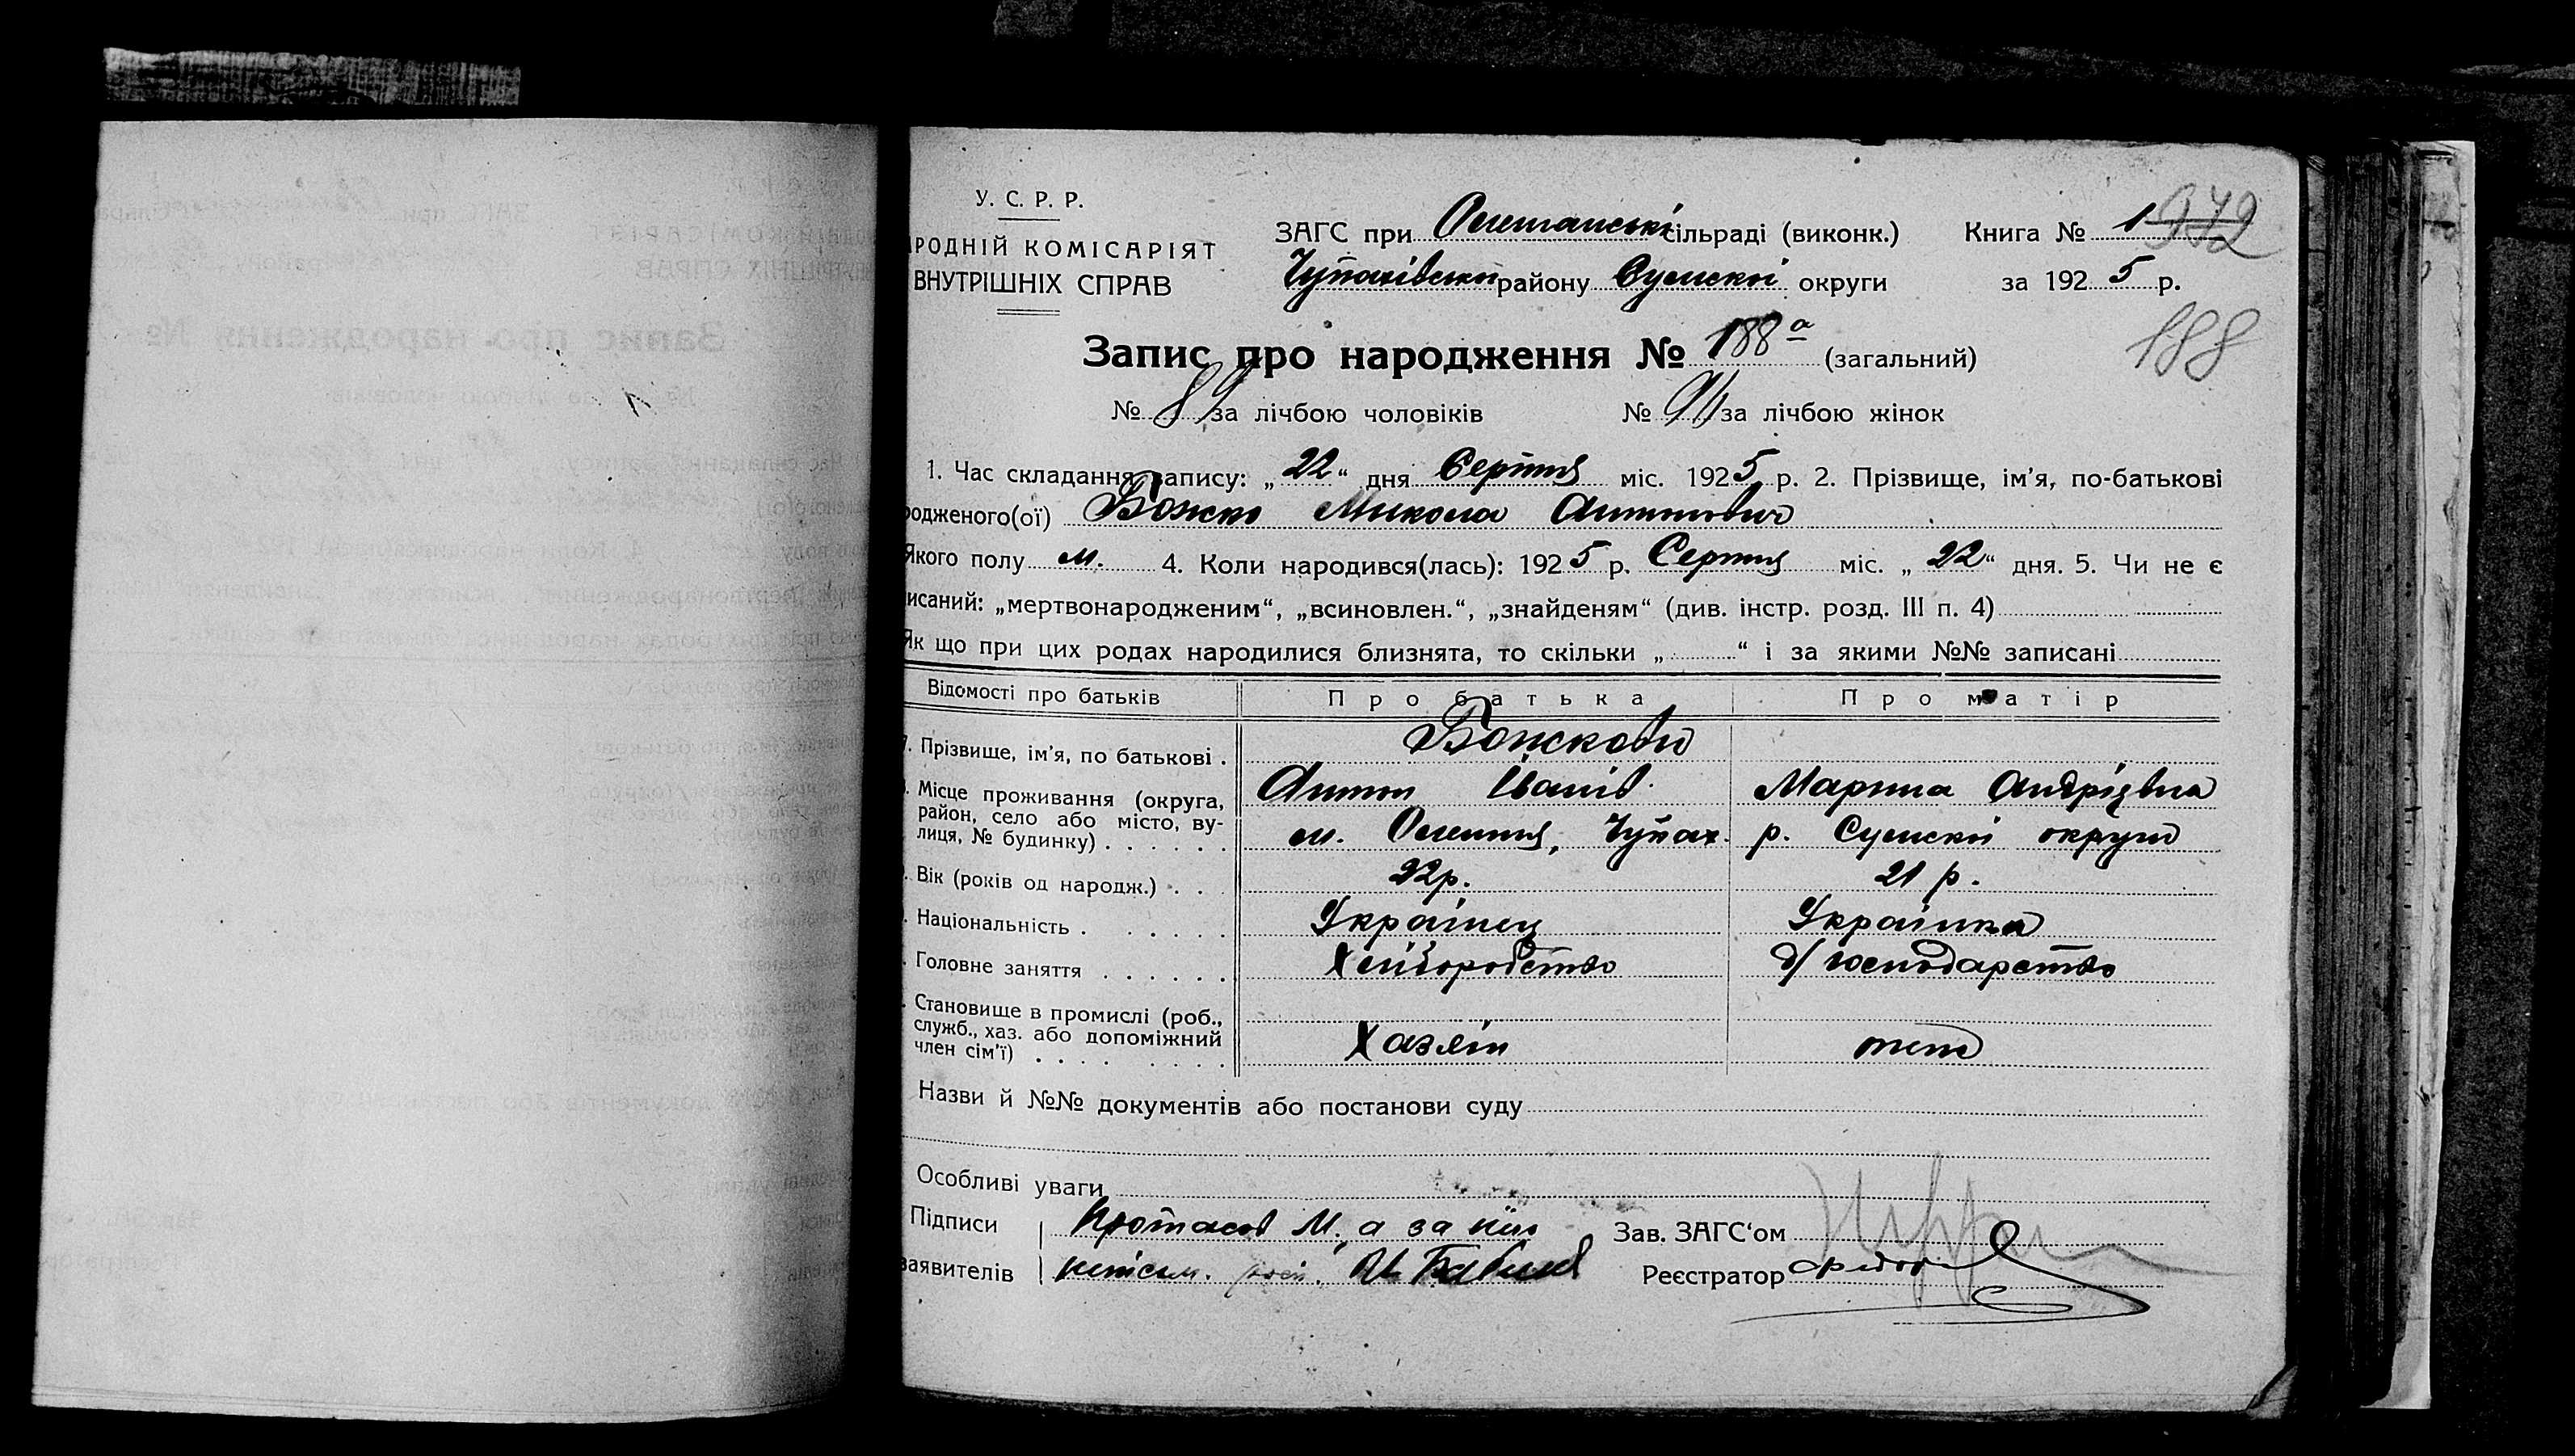 У. С. Р. Р.
РОДНІЙ КОМІСАРІЯТ
ВНУТРІШНІХ СПРАВ
ЗАГС при Олешанські сільраді (виконк.)
Чупахівськ району Сумскої округи
Книга № 1 972
за 1925 р.
188
Запис про народження № 188 а (загальний)
№ 89 за лічбою чоловіків № 91 за лічбою жінок
1. Час складання запису: „22“ дня Серпня міс. 1925 р. 2. Прізвище, ім'я, по-батькові
родженого(ої) Божко Микола Антонович
Якого полу м. 4. Коли народився(лась): 1925 р. Серпня міс. „22“ дня. 5. Чи не є
исаний: „мертвонародженим“, „всиновлен.“, „знайденям“ (див. інстр. розд. III п. 4)
Як що при цих родах народилися близнята, то скільки „ “ і за якими №№ записані
Відомості про батьків Про батька Про матір
7. Прізвище, ім'я, по батькові . Божкови
Антон Іванів. Марина Андріївна
Місце проживання (округа, район, село або місто, вулиця, № будинку) . . . . . . м. Олешня, Чупах. р. Сумскої округи
Вік (років од народж.) . . . 22 р. 21 р.
Національність . . . . . . Українец Українка
Головне заняття . . . . . . Хліборобство д/господарство
Становище в промислі (роб., служб., хаз. або допоміжний член сім'ї) . . . . . . . . Хазяїн
Назви й №№ документів або постанови суду
Особливі уваги
Підписи Протасов М., а за
заявителів неписьм.
Зав. ЗАГС'ом
Реєстратор